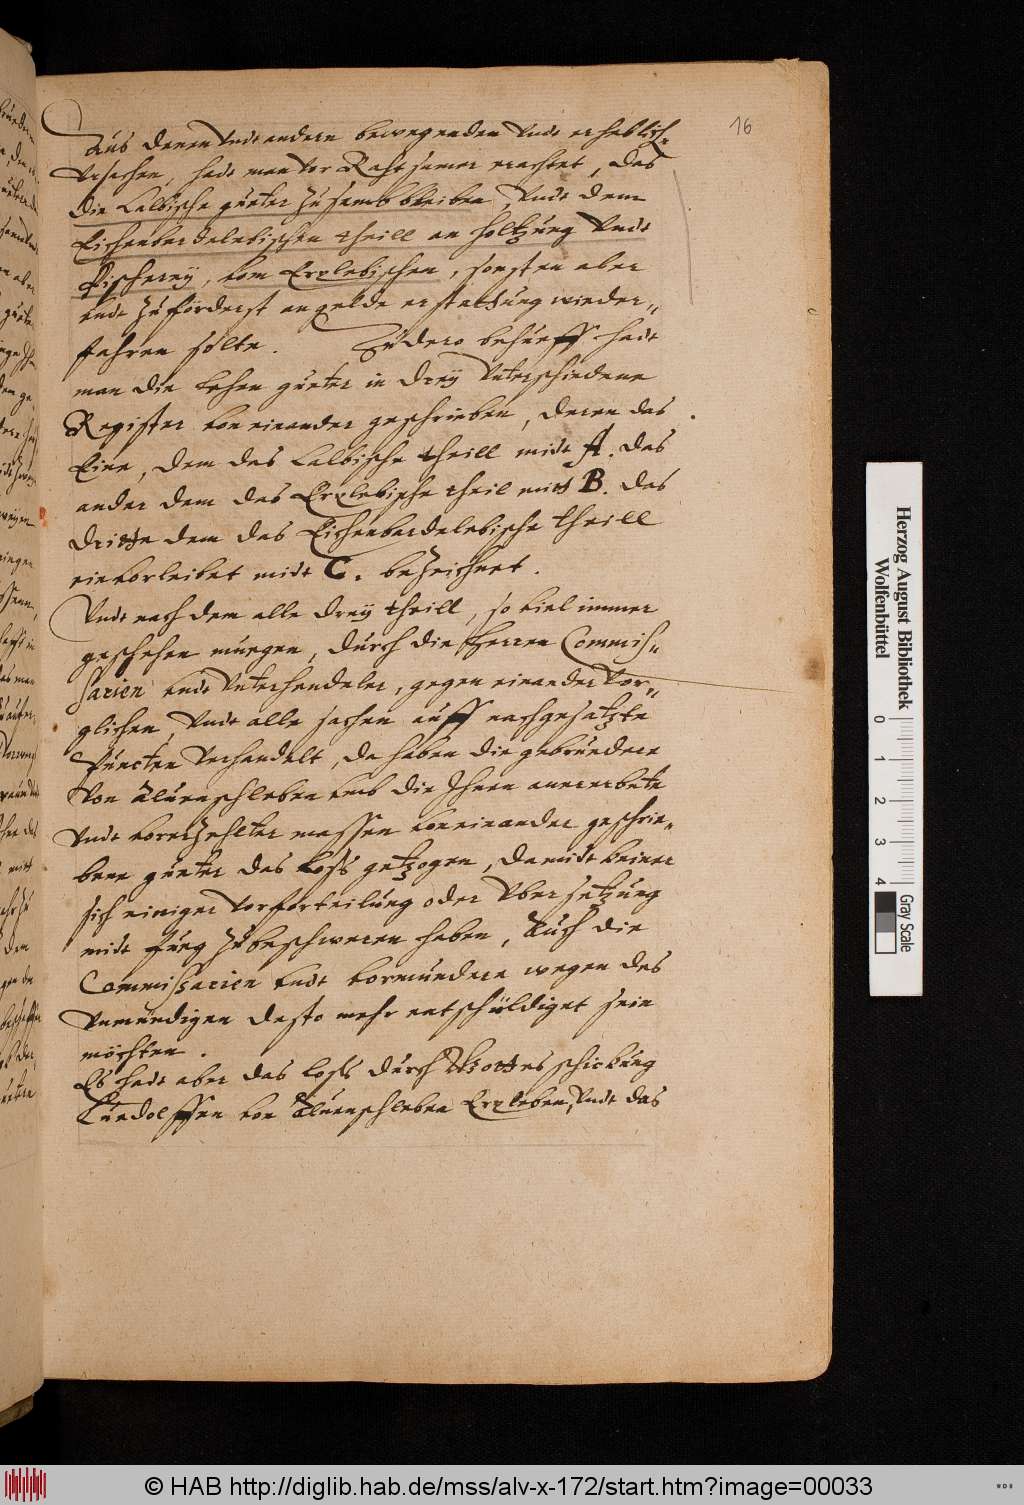 16
Aus denen Undt andern bewegenden Undt erheblich
Ursachen, hadt man vor Rahtsamer erachtet, das
die Calbische gueter zusamb bleiben, Undt dem
Eichenbardelebischen theill an holtzung Undt
fischerey, vom Erxlebischen, sonsten aber
undt zuförderst an gelde erstattung wieder„
fahren solte. Zu dero behueff hadt
man die Lehen gueter in drey Unterschiedene
Register von einander geschrieben, deren das
Eine, dem das Calbische theill midt A. das
ander dem das Erxlebische theil mitt B. das
dritte dem das Eichenbardelebische theill
einvorleibet midt C. bezeichnet.
Undt nach dem alle drey theill, so viel immer
geschehen muegen, durch die Herren Commis„
sarien undt Unterhendeler, gegen einander vor„
glichen, Undt alle sachen auff nachgesatzte
Puncten Verhandelt, da haben die gebruedere
Von Aluenschleben umb die Ihnen anererbete
Undt vorerzehlter massen voneinander geschrie„
bene gueter das Loss getzogen, damidt keiner
sich einiger vorforteilung oder Ubersetzung
midt fueg zubeschweren haben, Auch die
Commissarien undt vormundere wegen des
Unmündigen desto mehr entschüldiget sein
möchten.
Es hadt aber das Loss durch Gottes schickung
Ludolffen von Aluenschleben Erxleben, Undt das
Herzog August Bibliothek
Wolfenbüttel
0 1 2 3 4
Gray Scale
© HAB http://diglib.hab.de/mss/alv-x-172/start.htm?image=00033